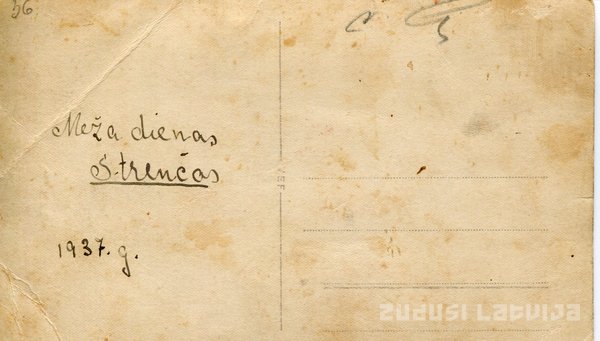 56
Meža dienas
Strenčos
1937. g.
VEF
ZUDUSI LATVIJA